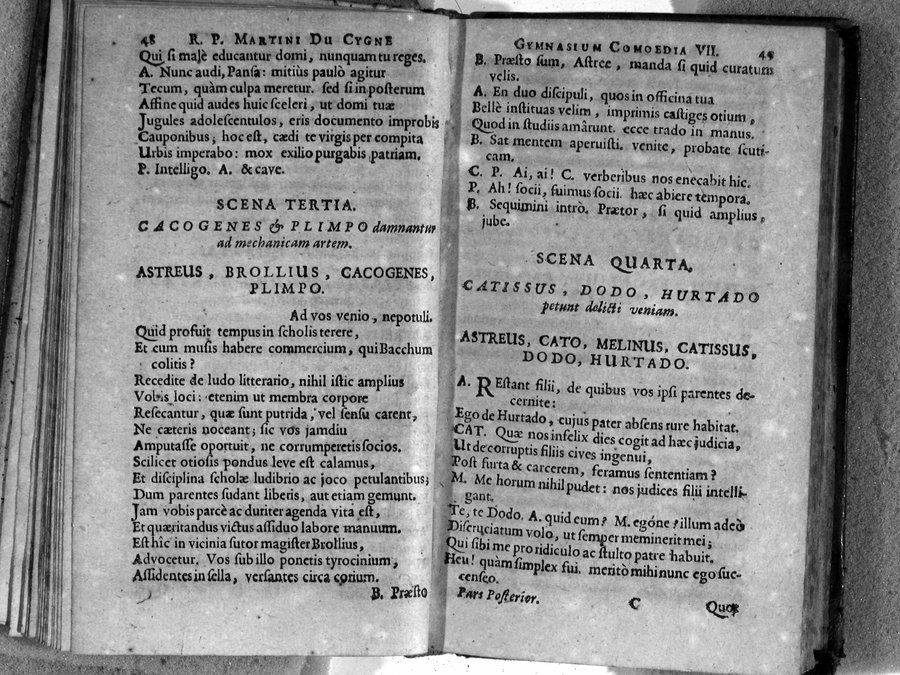 48 R. P. MARTINI DU CYGNE
Qui si malè educantur domi, nunquam tu reges.
A. Nunc audi, Pansa: mitiùs paulò agitur
Tecum, quàm culpa meretur. sed si in posterum
Affine quid audes huic sceleri, ut domi tuæ
Jugules adolescentulos, eris documento improbis
Cauponibus; hoc est, cædi te virgis per compita
Urbis imperabo: mox exilio purgabis patriam.
P. Intelligo. A. & cave.
SCENA TERTIA.
CACOGENES & PLIMPO damnantur
ad mechanicam artem.
ASTREUS, BROLLIUS, CACOGENES,
PLIMPO.
Ad vos venio, nepotuli.
Quid profuit tempus in scholis terere,
Et cum musis habere commercium, qui Bacchum
colitis?
Recedite de ludo litterario, nihil istic amplius
Vobis loci: etenim ut membra corpore
Resecantur, quæ sunt putrida, vel sensu carent,
Ne cæteris noceant; sic vos jamdiu
Amputasse oportuit, ne corrumperetis socios.
Scilicet otiosis pondus leve est calamus,
Et disciplina scholæ ludibrio ac joco petulantibus;
Dum parentes sudant liberis, aut etiam gemunt.
Jam vobis parcè ac duriter agenda vita est,
Et quæritandus victus assiduo labore manuum.
Est hîc in vicinia sutor magister Brollius,
Advocetur. Vos sub illo ponetis tyrocinium,
Assidentes in sella, versantes circa corium.
B. Præsto
GYMNASIUM COMOEDIA VII. 49
B. Præsto sum, Astree, manda si quid curatum
velis.
A. En duo discipuli, quos in officina tua
Bellè instituas velim, imprimis castiges otium,
Quod in studiis amârunt. ecce trado in manus.
B. Sat mentem aperuisti. venite, probate scuti-
cam.
C. P. Ai, ai! C. verberibus nos enecabit hic.
P. Ah! socii, fuimus socii. hæc abiere tempora.
B. Sequimini intrò. Prætor, si quid amplius,
jube.
SCENA QUARTA.
CATISSUS, DODO, HURTADO
petunt delicti veniam.
ASTREUS, CATO, MELINUS, CATISSUS,
DODO, HURTADO.
A. REstant filii, de quibus vos ipsi parentes de-
cernite:
Ego de Hurtado, cujus pater absens rure habitat.
CAT. Quæ nos infelix dies cogit ad hæc judicia,
Ut de corruptis filiis cives ingenui,
Post furta & carcerem, feramus sententiam?
M. Me horum nihil pudet: nos judices filii intelli-
gant.
Te, te Dodo. A. quid eum? M. egóne? illum adeò
Discruciatum volo, ut semper meminerit mei;
Qui sibi me pro ridiculo ac stulto patre habuit.
Heu! quàm simplex fui. meritò mihi nunc ego suc-
censeo.
Pars Posterior. C Quos